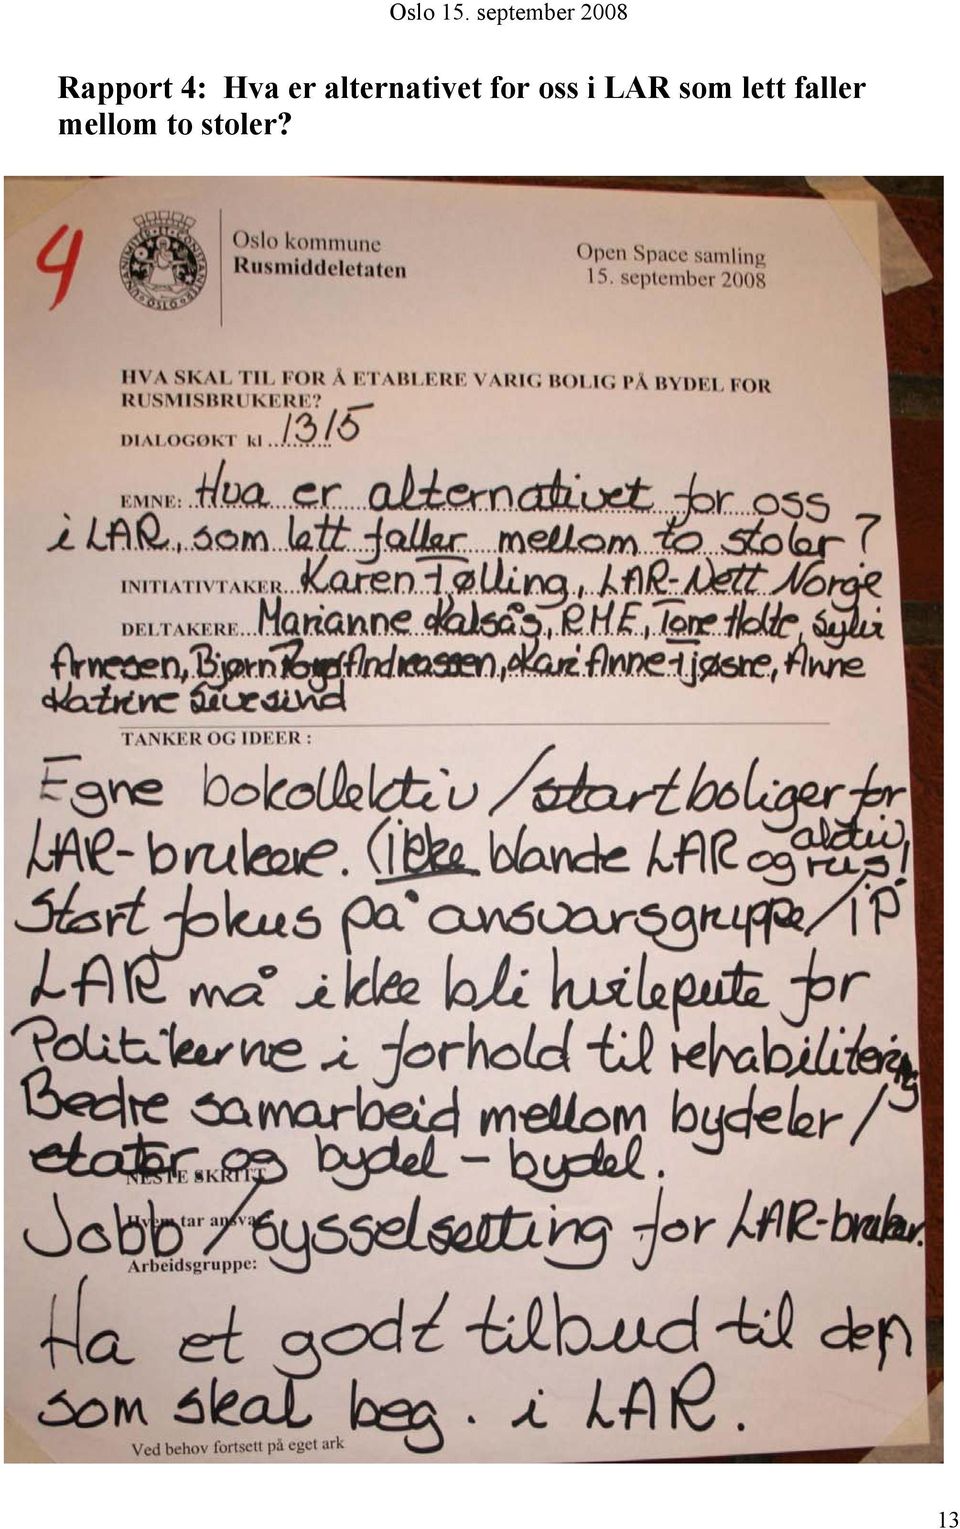 Oslo 15. september 2008
Rapport 4: Hva er alternativet for oss i LAR som lett faller
mellom to stoler?
4
Oslo kommune
Rusmiddeletaten
Open Space samling
15. september 2008
HVA SKAL TIL FOR Å ETABLERE VARIG BOLIG PÅ BYDEL FOR
RUSMISBRUKERE?
DIALOGØKT kl ..1315
EMNE: Hva er alternativet for oss
i LAR, som lett faller mellom to stoler?
INITIATIVTAKER Karen Tølling, LAR-Nett Norge
DELTAKERE Marianne Kalsås, RME, Tone Holte,
Arnesen, Bjørn Andreassen, Kari Anne Tjøsne, Anne
Katrine Sivesind
TANKER OG IDEER :
Egne bokollektiv/startboliger for
LAR-brukere. (ikke blande LAR og aktiv rus!
Start fokus på ansvarsgruppe/IP
LAR må ikke bli hvilepute for
Politikerne i forhold til rehabilitering
Bedre samarbeid mellom bydeler/
etater og bydel - bydel.
NESTE SKRITT
Jobb/sysselsetting for LAR-bruker.
Hvem tar ansvar
Arbeidsgruppe:
Ha et godt tilbud til den
som skal beg. i LAR.
Ved behov fortsett på eget ark
13